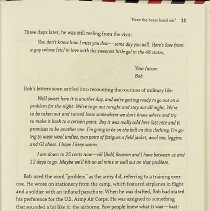 "Were the brass band out" 15
Three days later, he was still reeling from the visit:
You don't know how I miss you dear—some day you will. Here's love from
a guy whose [in] love with the sweetest little gal in the 48 states.
Your future
Bob
Bob's letters soon settled into recounting the routines of military life:
Well sweet here it is another day, and we're getting ready to go out on a
problem for the night. We're to go out tonight and stay out all night. We're
to be taken out and turned loose somewhere we don't know where and try
to make it back to a certain point. Boy it was really cold here last nite and it
promises to be another one. I'm going to be on the ball on this clothing. I'm go-
ing to wear wool undies, two pairs of fatigues a field jacket, wool sox, leggins
and GI shoes. I hope I keep warm.
I am down to 35 cents now—all [Bob] fortune and I have between us and
12 days to go. Maybe we'll hit an oil mine or well out on that problem.
Bob used the word "problem" as the army did, referring to a training exer-
cise. He wrote on stationery from the camp, which featured airplanes in flight
and a soldier with an inflated parachute. When he was drafted, Bob had stated
his preference for the US. Army Air Corps. He was assigned to something
that sounded a bit like it: the airborne. Few people knew what it was—basi-